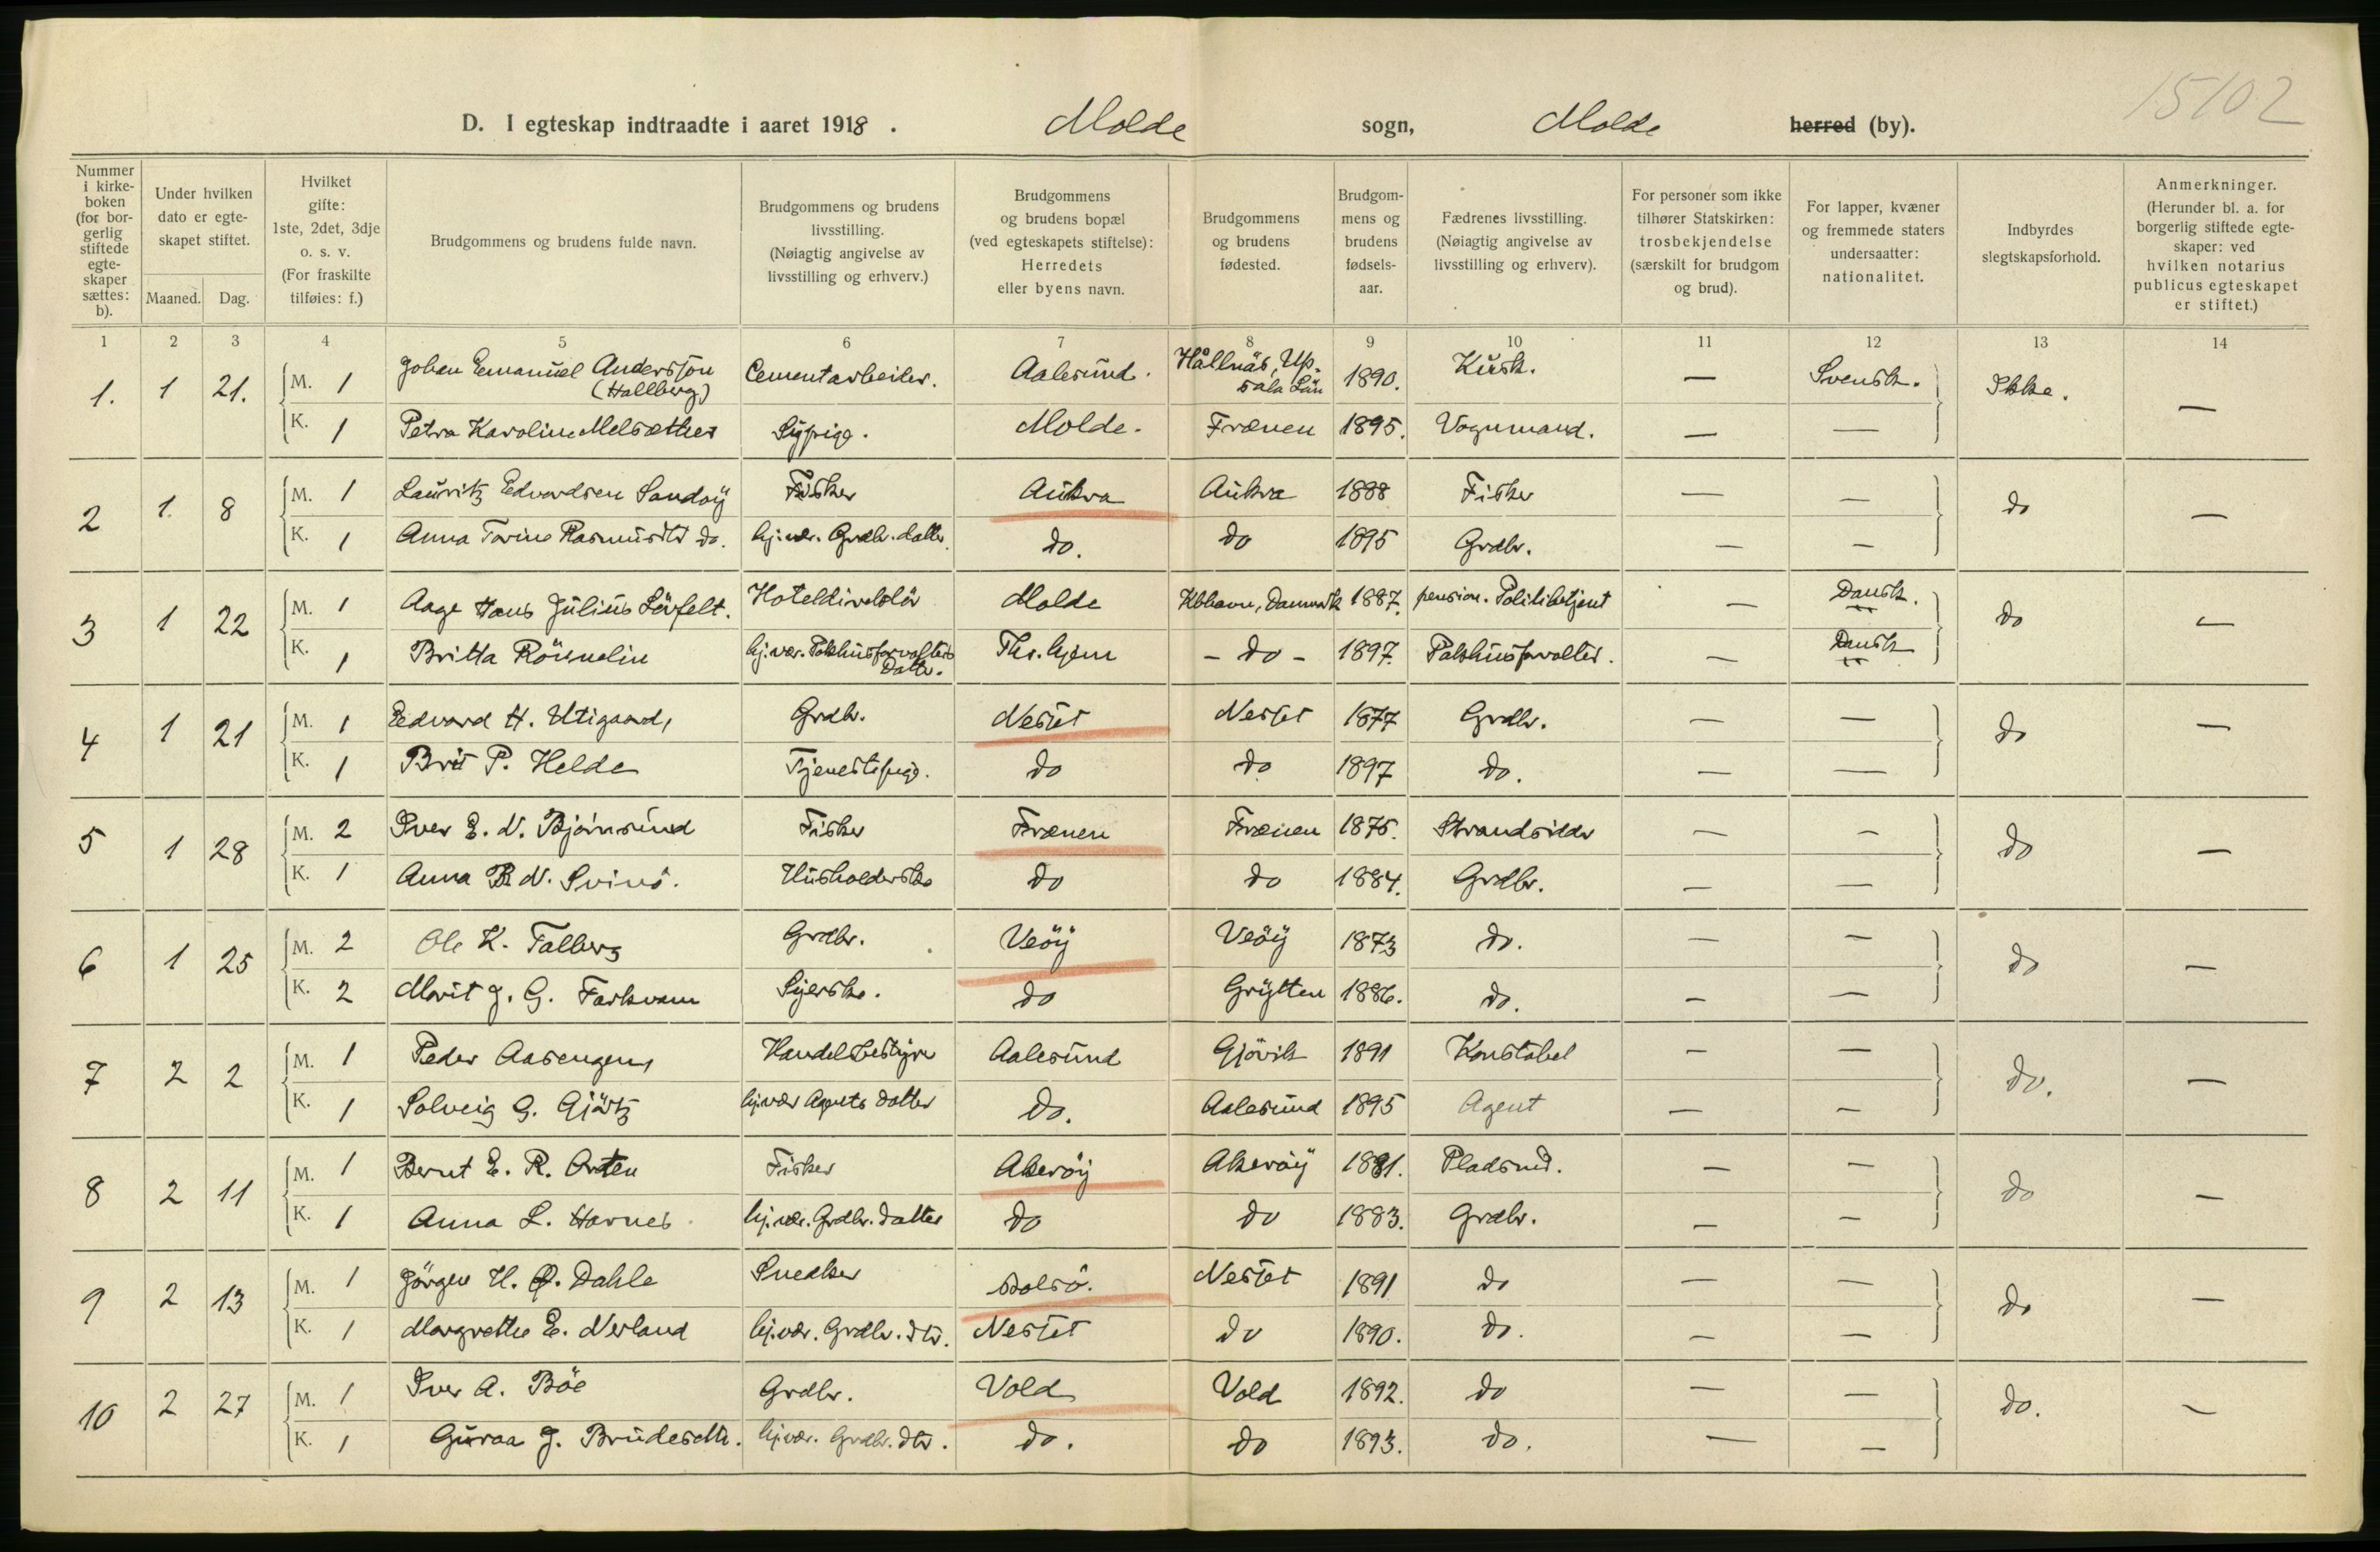 15/02
D. I egteskap indtraadte i aaret 1918. Molde sogn, Molde herred (by).
Nummer i kirke-boken (for bor-gerlig stiftede egte-skaper sættes: b).
Under hvilken dato er egte-skapet stiftet.
Maaned. Dag.
Hvilket gifte: 1ste, 2det, 3dje o. s. v. (For fraskilte tilføies: f.)
Brudgommens og brudens fulde navn.
Brudgommens og brudens livsstilling. (Nøiagtig angivelse av livsstilling og erhverv.)
Brudgommens og brudens bopæl (ved egteskapets stiftelse): Herredets eller byens navn.
Brudgommens og brudens fødested.
Brudgom-mens og brudens fødsels-aar.
Fædrenes livsstilling. (Nøiagtig angivelse av livsstilling og erhverv).
For personer som ikke tilhører Statskirken: trosbekjendelse (særskilt for brudgom og brud).
For lapper, kvæner og fremmede staters undersaatter: nationalitet.
Indbyrdes slegtskapsforhold.
Anmerkninger. (Herunder bl. a. for borgerlig stiftede egte-skaper: ved hvilken notarius publicus egteskapet er stiftet.)
1 2 3 4 5 6 7 8 9 10 11 12 13 14
1. 1 21. M. 1 Johan Emanuel Andersson (Hallberg) Cementarbeider. Aalesund. Hållnäs, Upsala Län 1890. Kusk. — Svensk. Ikke. —
K. 1 Petra Karoline Melsæther Sypige. Molde. Frænen 1895. Vognmand. — —
2 1. 8 M. 1 Lauritz Edvardsen Sandøy Fisker Aukra Aukra 1888 Fisker — — do —
K. 1 Anna Tarine Rasmusdtr do. hj.vær. Grdbr. datter. do. do 1895 Grdbr. — —
3 1 22 M. 1 Aage Hans Julius Lövfelt. Hoteldirektör Molde Kbhavn, Danmark 1887. pension. Politibetjent — Dansk. do —
K. 1 Britta Rönnelin hj.vær. Pakhusforvalters Datter. Ths.hjem – do – 1897. Pakhusforvalter. — Dansk
4 1 21 M. 1 Edvard H. Utigaard, Grdbr. Nesset Nesset 1877 Grdbr. — — do —
K. 1 Brit P. Helde Tjenestepige. do do 1897 do. — —
5 1 28 M. 2 Iver E. N. Bjørnsund Fisker Frænen Frænen 1875. Strandsidder — — do —
K. 1 Anna B. N. Svinø. Husholderske do do 1884. Grdbr. — —
6 1 25 M. 2 Ole K. Talberg Grdbr. Veöy Veöy 1873 do. — — do —
K. 2 Marit J. G. Farkvam Syerske. do Grytten 1886. do. — —
7 2 2 M. 1 Peder Aasengen, Handelsbestyrer Aalesund Gjövik 1891 Konstabel — — do. —
K. 1 Solveig G. Gjörtz hj.vær Agents datter do. Aalesund 1895 Agent — —
8 2 11 M. 1 Bernt E. R. Orten Fisker Akeröy Akeröy 1881. Pladsmd. — — do —
K. 1 Anna L. Harnes hj.vær. Grdbr. datter do do 1883. Grdbr. — —
9 2 13 M. 1 Jörgen H. O. Dahle Snedker Bolsö. Nesset 1891 do — — do —
K. 1 Margrethe E. Nerland hj.vær. Grdbr. dtr. Nesset do 1890. do. — —
10 2 27 M. 1 Iver A. Böe Grdbr. Vold Vold 1892. do — — do. —
K. 1 Guraa J. Brudeseth. hj.vær. Grdbr. dtr. do. do 1893. do. — —